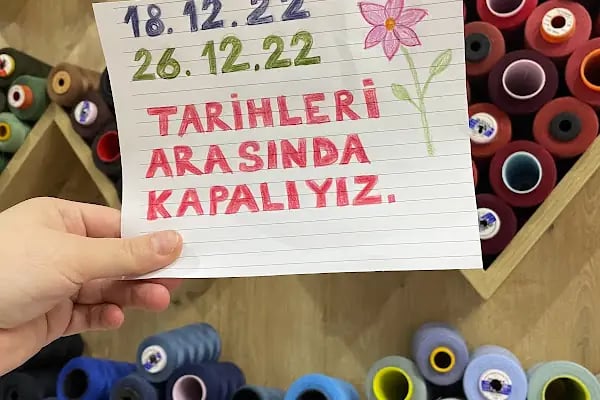 18.12.22
26.12.22
TARİHLERİ
ARASINDA
KAPALIYIZ.